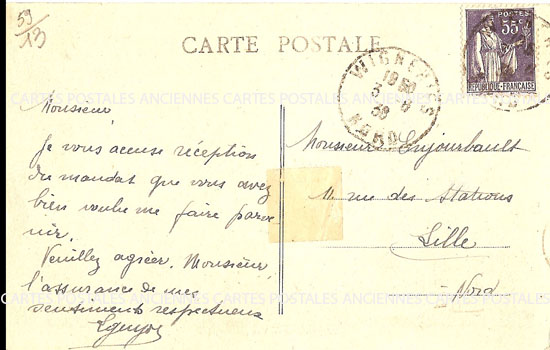 59
13
CARTE POSTALE
POSTES
55c
REPUBLIQUE-FRANÇAISE
WIGNEHIES
18 30
38
NORD
CARTES POSTALES ANCIENNES CARTES POSTALES ANCIENNES CARTES POSTALES
Monsieur,
Je vous accuse réception
du mandat que vous avez
bien voulu me faire parve
nir.
Veuillez agréer, Monsieur,
l'assurance de mes
sentiments respectueux
Monsieur Enjourbault
11 rue des Stations
Lille
Nord
CARTES POSTALES ANCIENNES CARTES POSTALES ANCIENNES CARTES POSTALES